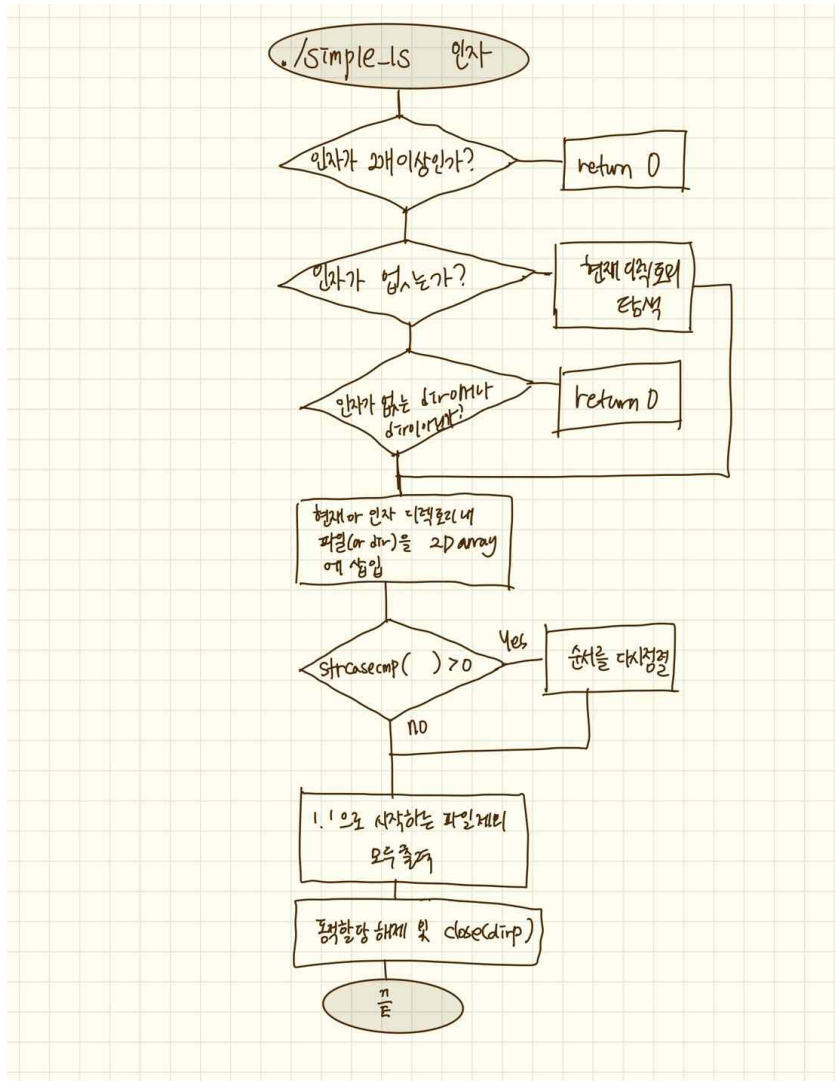 ./simple_ls 인자
인자가 2개 이상인가?
return 0
인자가 없는가?
현재 디렉토리
탐색
인자가 없는 dir이거나
dir이 아닌가?
return 0
현재 or 인자 디렉토리 내
파일(or dir)을 2D array
에 삽입
strcasecmp( ) >0
Yes
순서를 다시정렬
no
'.'으로 시작하는 파일제외
모두출력
동적할당 해제 및 close(dirp)
끝